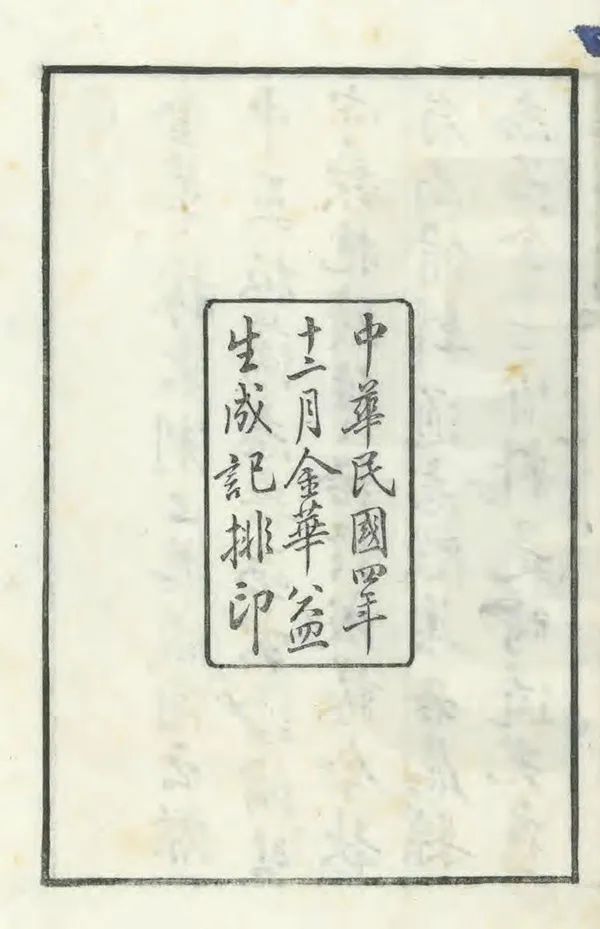 中華民國四年
十二月金華益
生成記排印